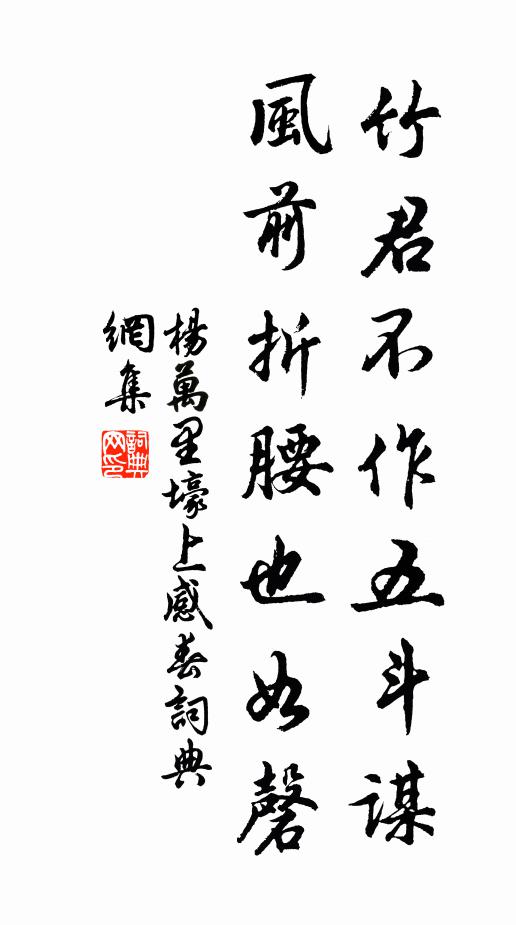 竹君不作五斗謀
風前折腰也如磬
楊萬里壕上感春詞典
網集
詞典
网印